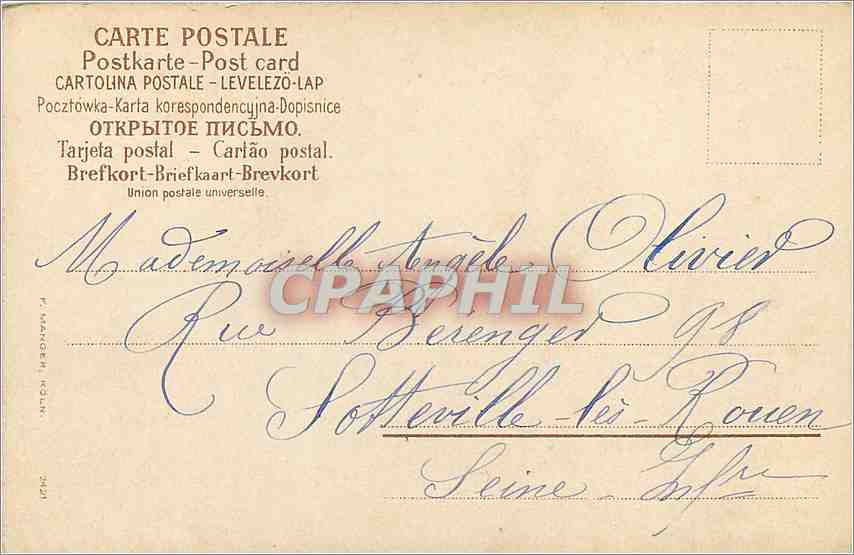 CARTE POSTALE
Postkarte-Post card
CARTOLINA POSTALE-LEVELEZŐ-LAP
Pocztówka-Karta korespondencyjna-Dopisnice
ОТКРЫТОЕ ПИСЬМО.
Tarjeta postal - Cartão postal.
Brefkort-Briefkaart-Brevkort
Union postale universelle.
Mademoiselle Angèle Olivier
CPAPHIL
Rue Bérenger 98
Sotteville-lès-Rouen
Seine-Infre
F. MANGER, KÖLN.
2421